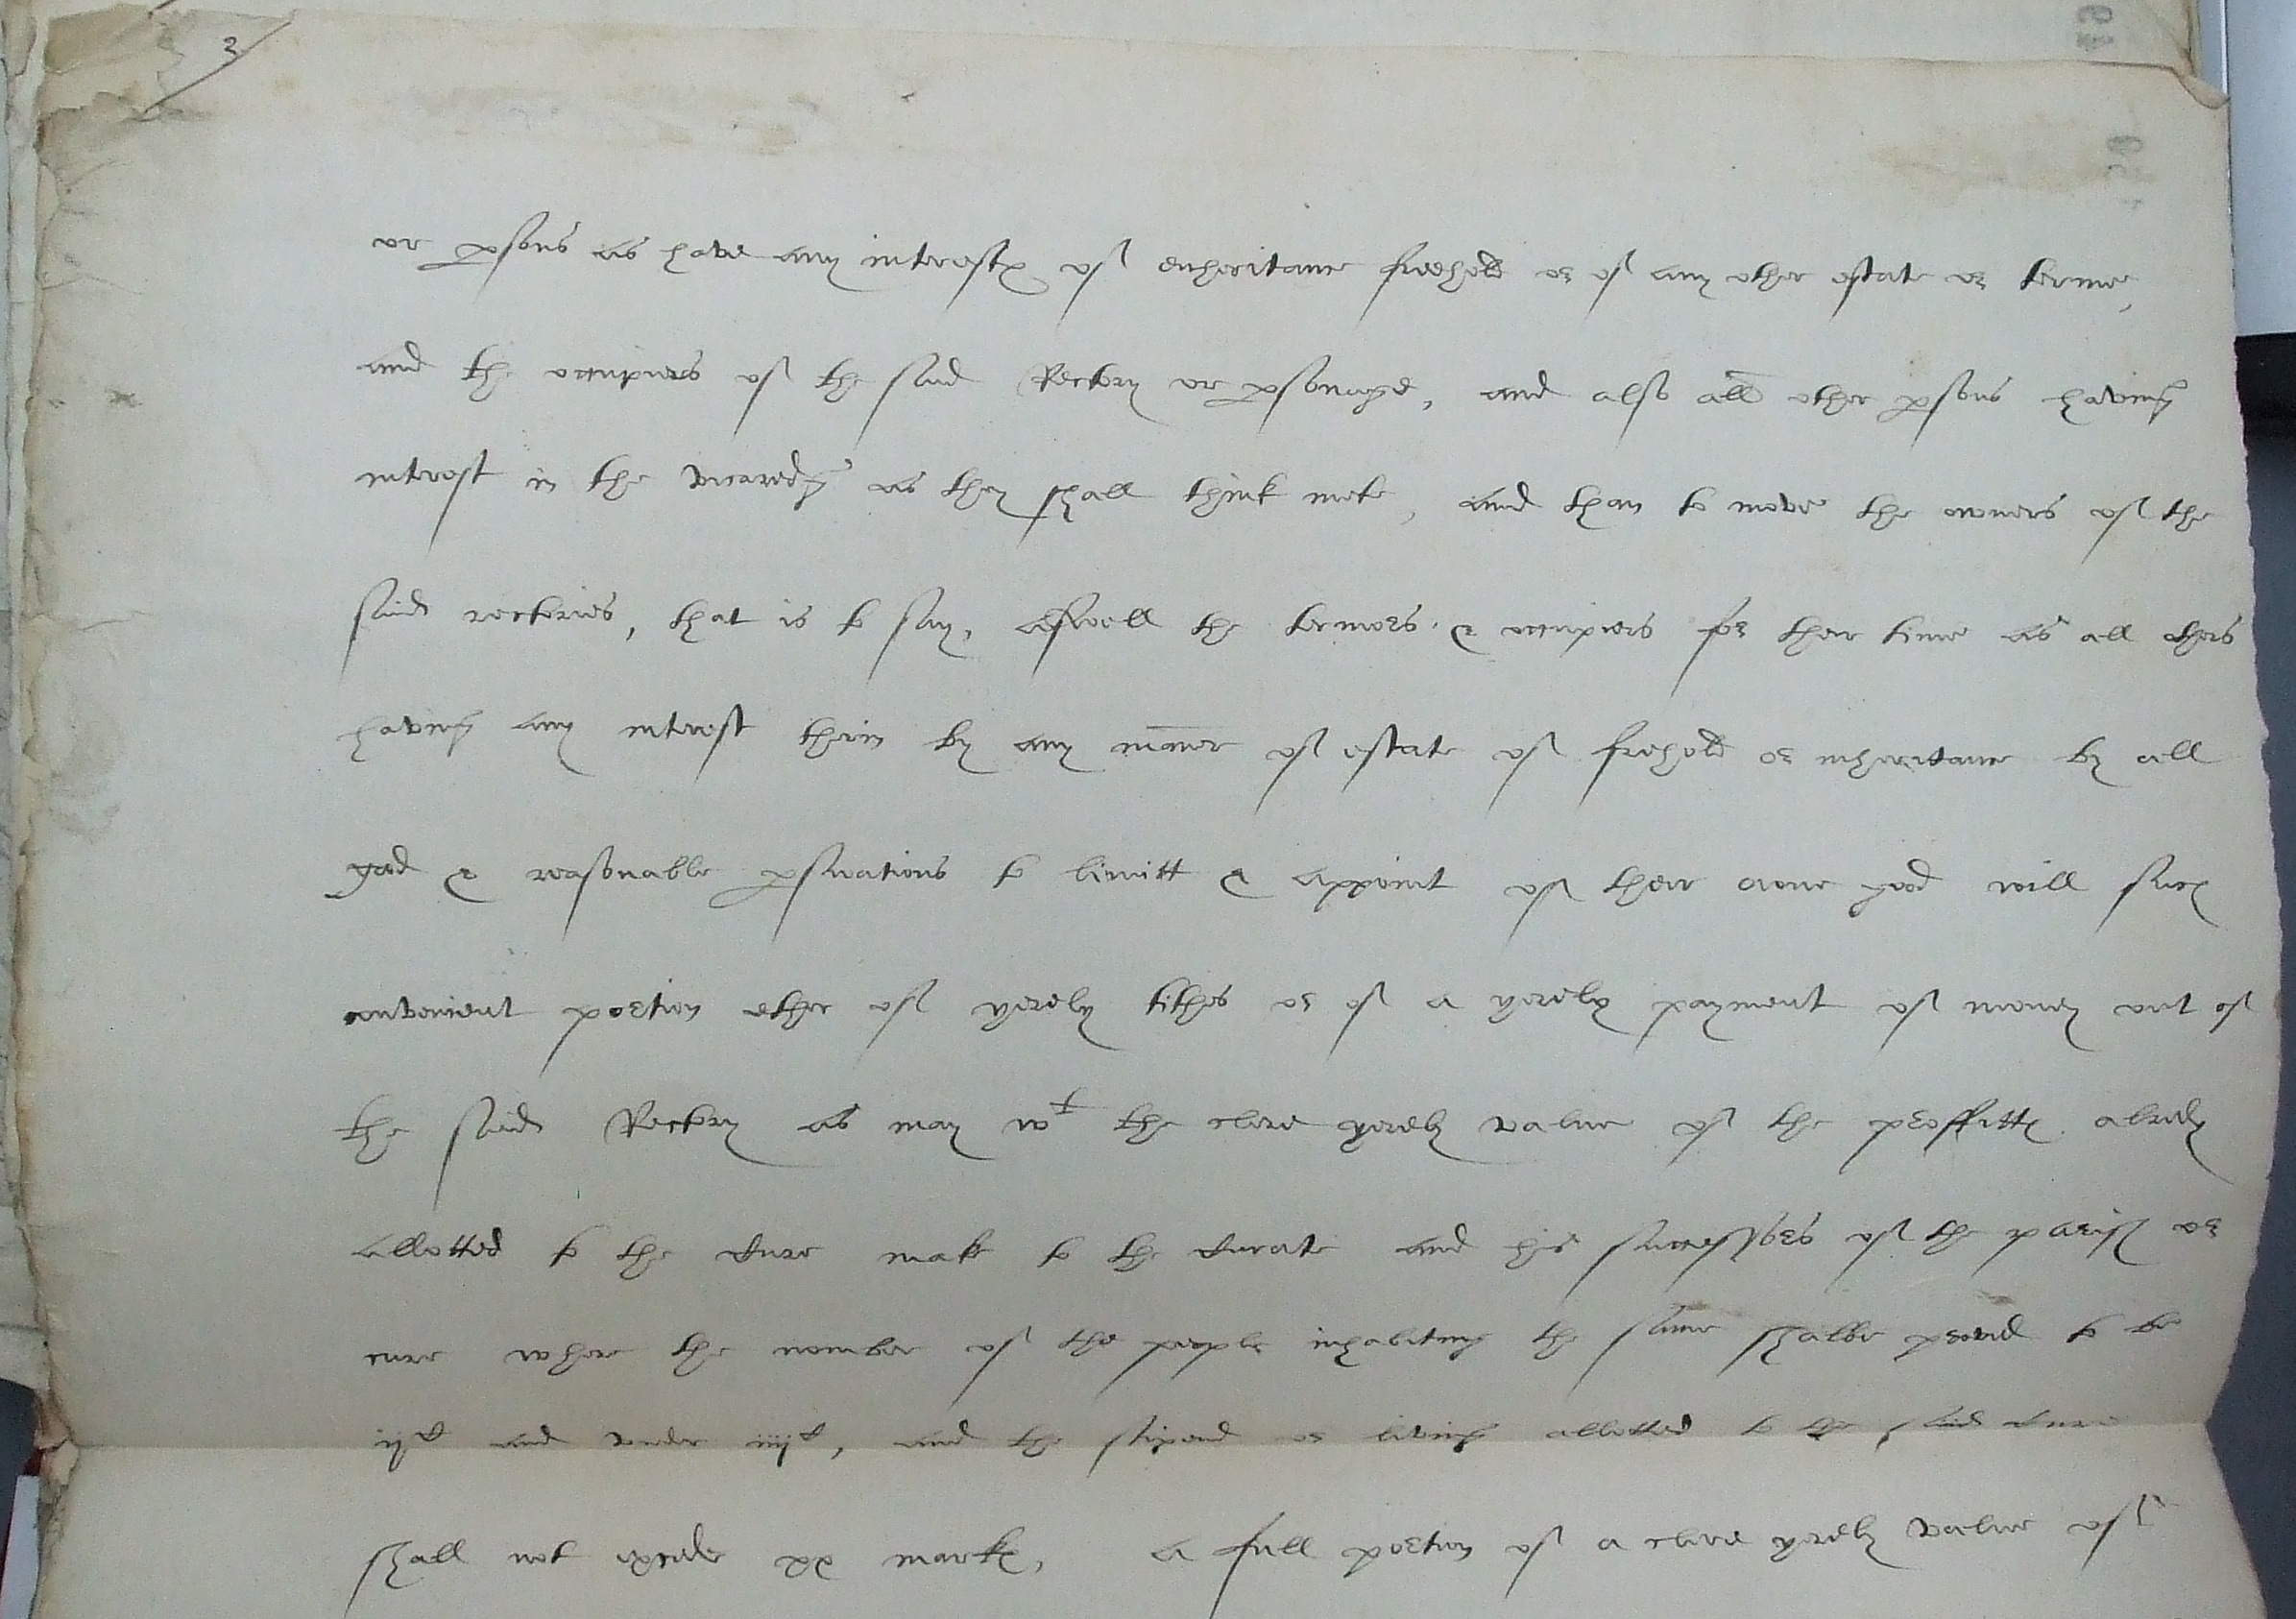 3
or psons as have any interestes of enheritance freehold or of any other estate or terme,
and the occupiers of the said Rectory or psonage, and also all other psons having
interest in the vicaredg as they shall think mete, and than to move the owners of the
said rectories, that is to say, aswell the termors & occupiers for their time as all others
having any interest therin by any maner of estate of frehold or inheritance by all
good & reasonable psuations to limitt & appoint of their owne good will such
convenient portion ether of yerely tithes or of a yerely payment of money out of
the said Rectory as may wt the clere yerely value of the proffittes alredy
allotted to the Cure make to the Curate and his successors of the parish or
cure where the nomber of the people inhabiting the same shalbe proved to be
iijC and under iiijC, and the stipend or living allotted to the said Cure
shall not excede xx markes, a full portion of a clere yerely value of